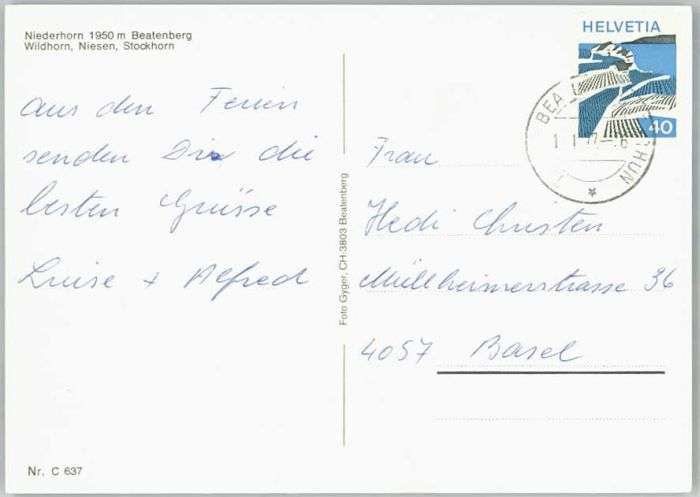 Niederhorn 1950 m Beatenberg
Wildhorn, Niesen, Stockhorn
aus den Ferien
senden Dir die
besten Grüsse
Luise + Alfred
Nr. C 637
Foto Gyger, CH-3803 Beatenberg
HELVETIA
40
Frau
Hedi Christen
Müllheimerstrasse 36
4057 Basel